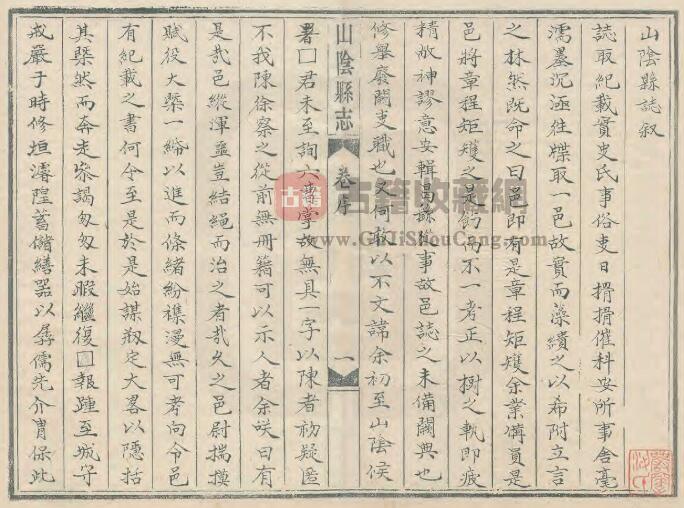 山陰縣誌叙
誌取紀載實史氏事俗吏日搰搰催科安所事舎毫
濡墨沉涵往牒取一邑故實而藻繢之以希附立言
之林然既命之曰邑即有是章程矩矱余業備員是
邑將章程矩矱之是飭而不一考正以樹之執即疲
精敝神謬意安輯曷
事故邑誌之未備闕典也
修舉廢闕吏職也又何敢以不文諱余初至山陰候
山陰縣志
卷序
一
署□君未至詢六曹掌故無具一字以陳者初疑匿
不我陳徐察之從前無冊籍可以示人者余咲曰有
是哉邑縱渾噩豈結繩而治之者哉久之邑尉揣摸
賦役大槩一綈以進而條緒紛襍漫無可考向令邑
有紀載之書何令至是於是始謀刱定大畧以隱括
其槩然而奔走叅謁匆匆未暇繼復□報踵至城守
戒嚴于時修垣濬隍蓄儲繕器以孱儒先介胄保此
古籍收藏網
www.GuJiShouCang.com